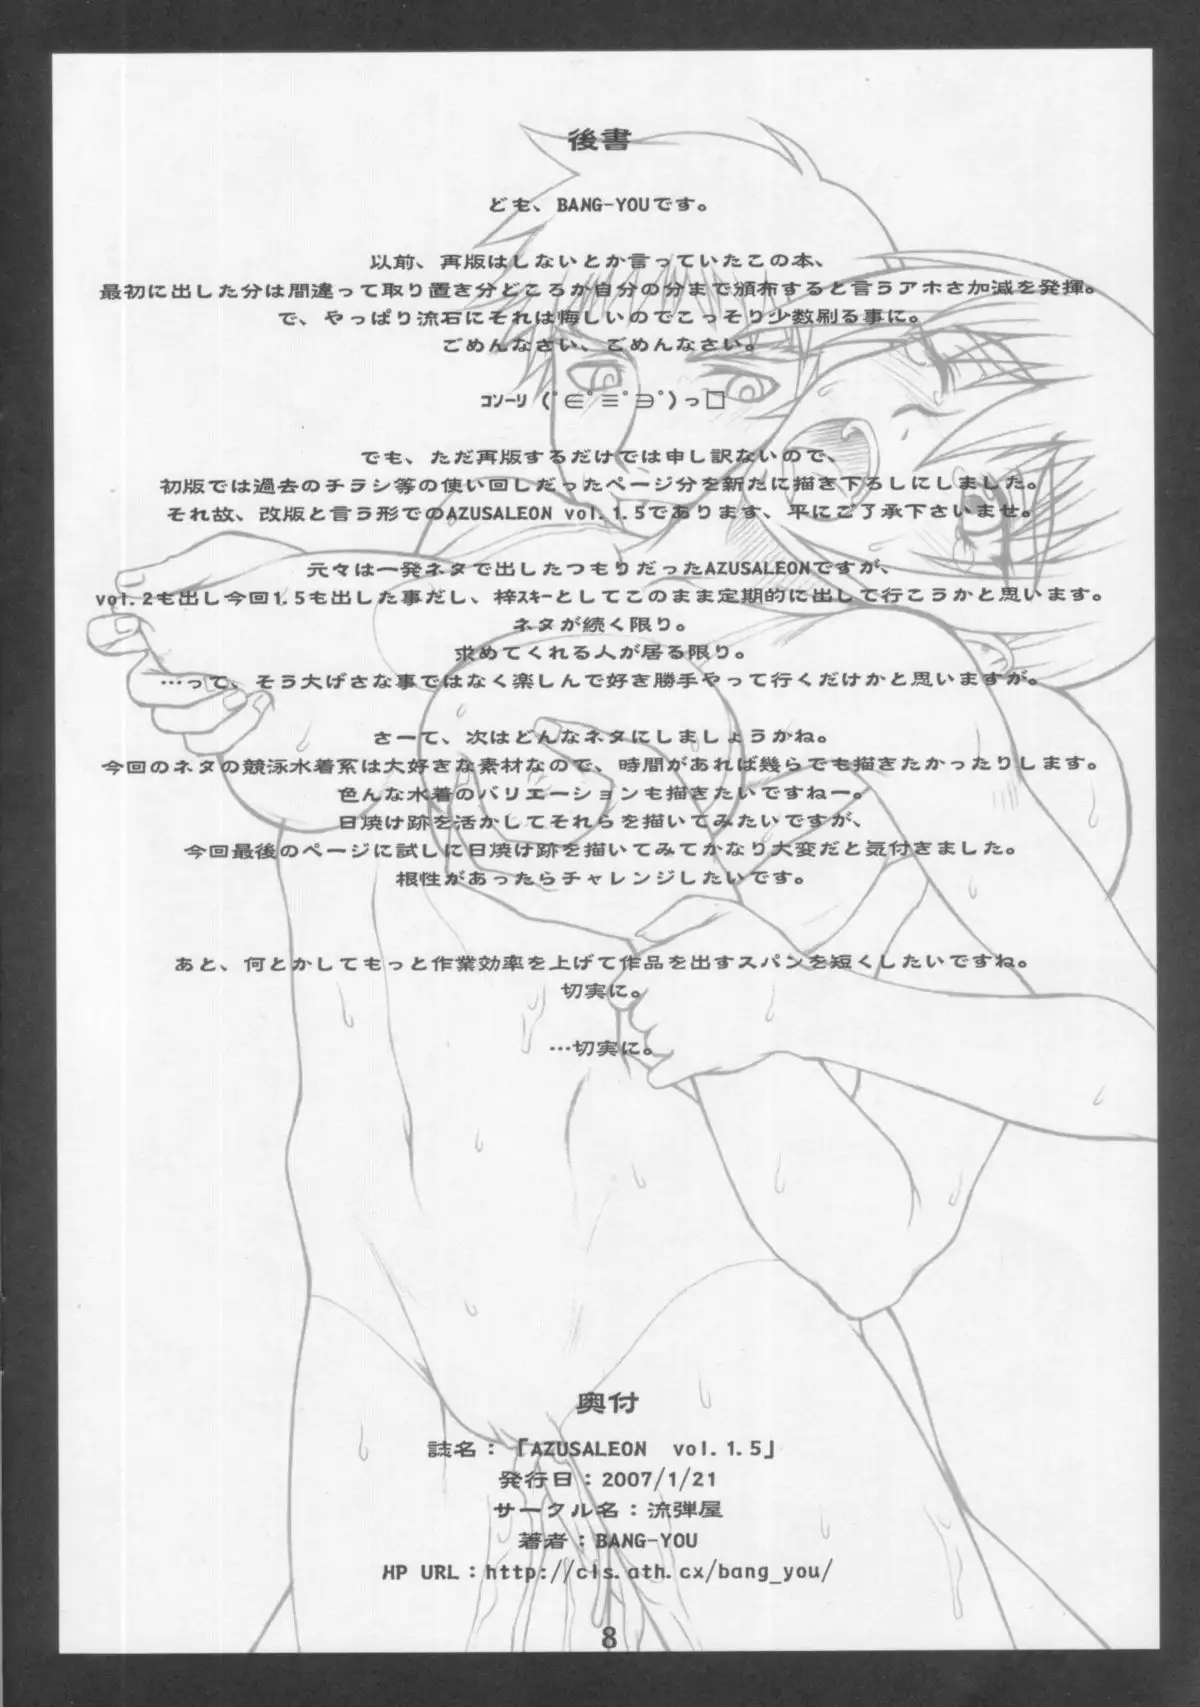 後書
ども、BANG-YOUです。
以前、再版はしないとか言っていたこの本、
最初に出した分は間違って取り置き分どころか自分の分まで頒布すると言うアホさ加減を発揮。
で、やっぱり流石にそれは悔しいのでこっそり少数刷る事に。
ごめんなさい、ごめんなさい。
ｺｿｰﾘ (ﾟ∈ﾟ≡ﾟ∋ﾟ)っ□
でも、ただ再版するだけでは申し訳ないので、
初版では過去のチラシ等の使い回しだったページ分を新たに描き下ろしにしました。
それ故、改版と言う形でのAZUSALEON vol.1.5であります、平にご了承下さいませ。
元々は一発ネタで出したつもりだったAZUSALEONですが、
vol.2も出し今回1.5も出した事だし、梓ｽｷｰとしてこのまま定期的に出して行こうかと思います。
ネタが続く限り。
求めてくれる人が居る限り。
…って、そう大げさな事ではなく楽しんで好き勝手やって行くだけかと思いますが。
さーて、次はどんなネタにしましょうかね。
今回のネタの競泳水着系は大好きな素材なので、時間があれば幾らでも描きたかったりします。
色んな水着のバリエーションも描きたいですねー。
日焼け跡を活かしてそれらを描いてみたいですが、
今回最後のページに試しに日焼け跡を描いてみてかなり大変だと気付きました。
根性があったらチャレンジしたいです。
あと、何とかしてもっと作業効率を上げて作品を出すスパンを短くしたいですね。
切実に。
…切実に。
奥付
誌名：「AZUSALEON　vol.1.5」
発行日：2007/1/21
サークル名：流弾屋
著者：BANG-YOU
HP URL：http://cls.ath.cx/bang_you/
8